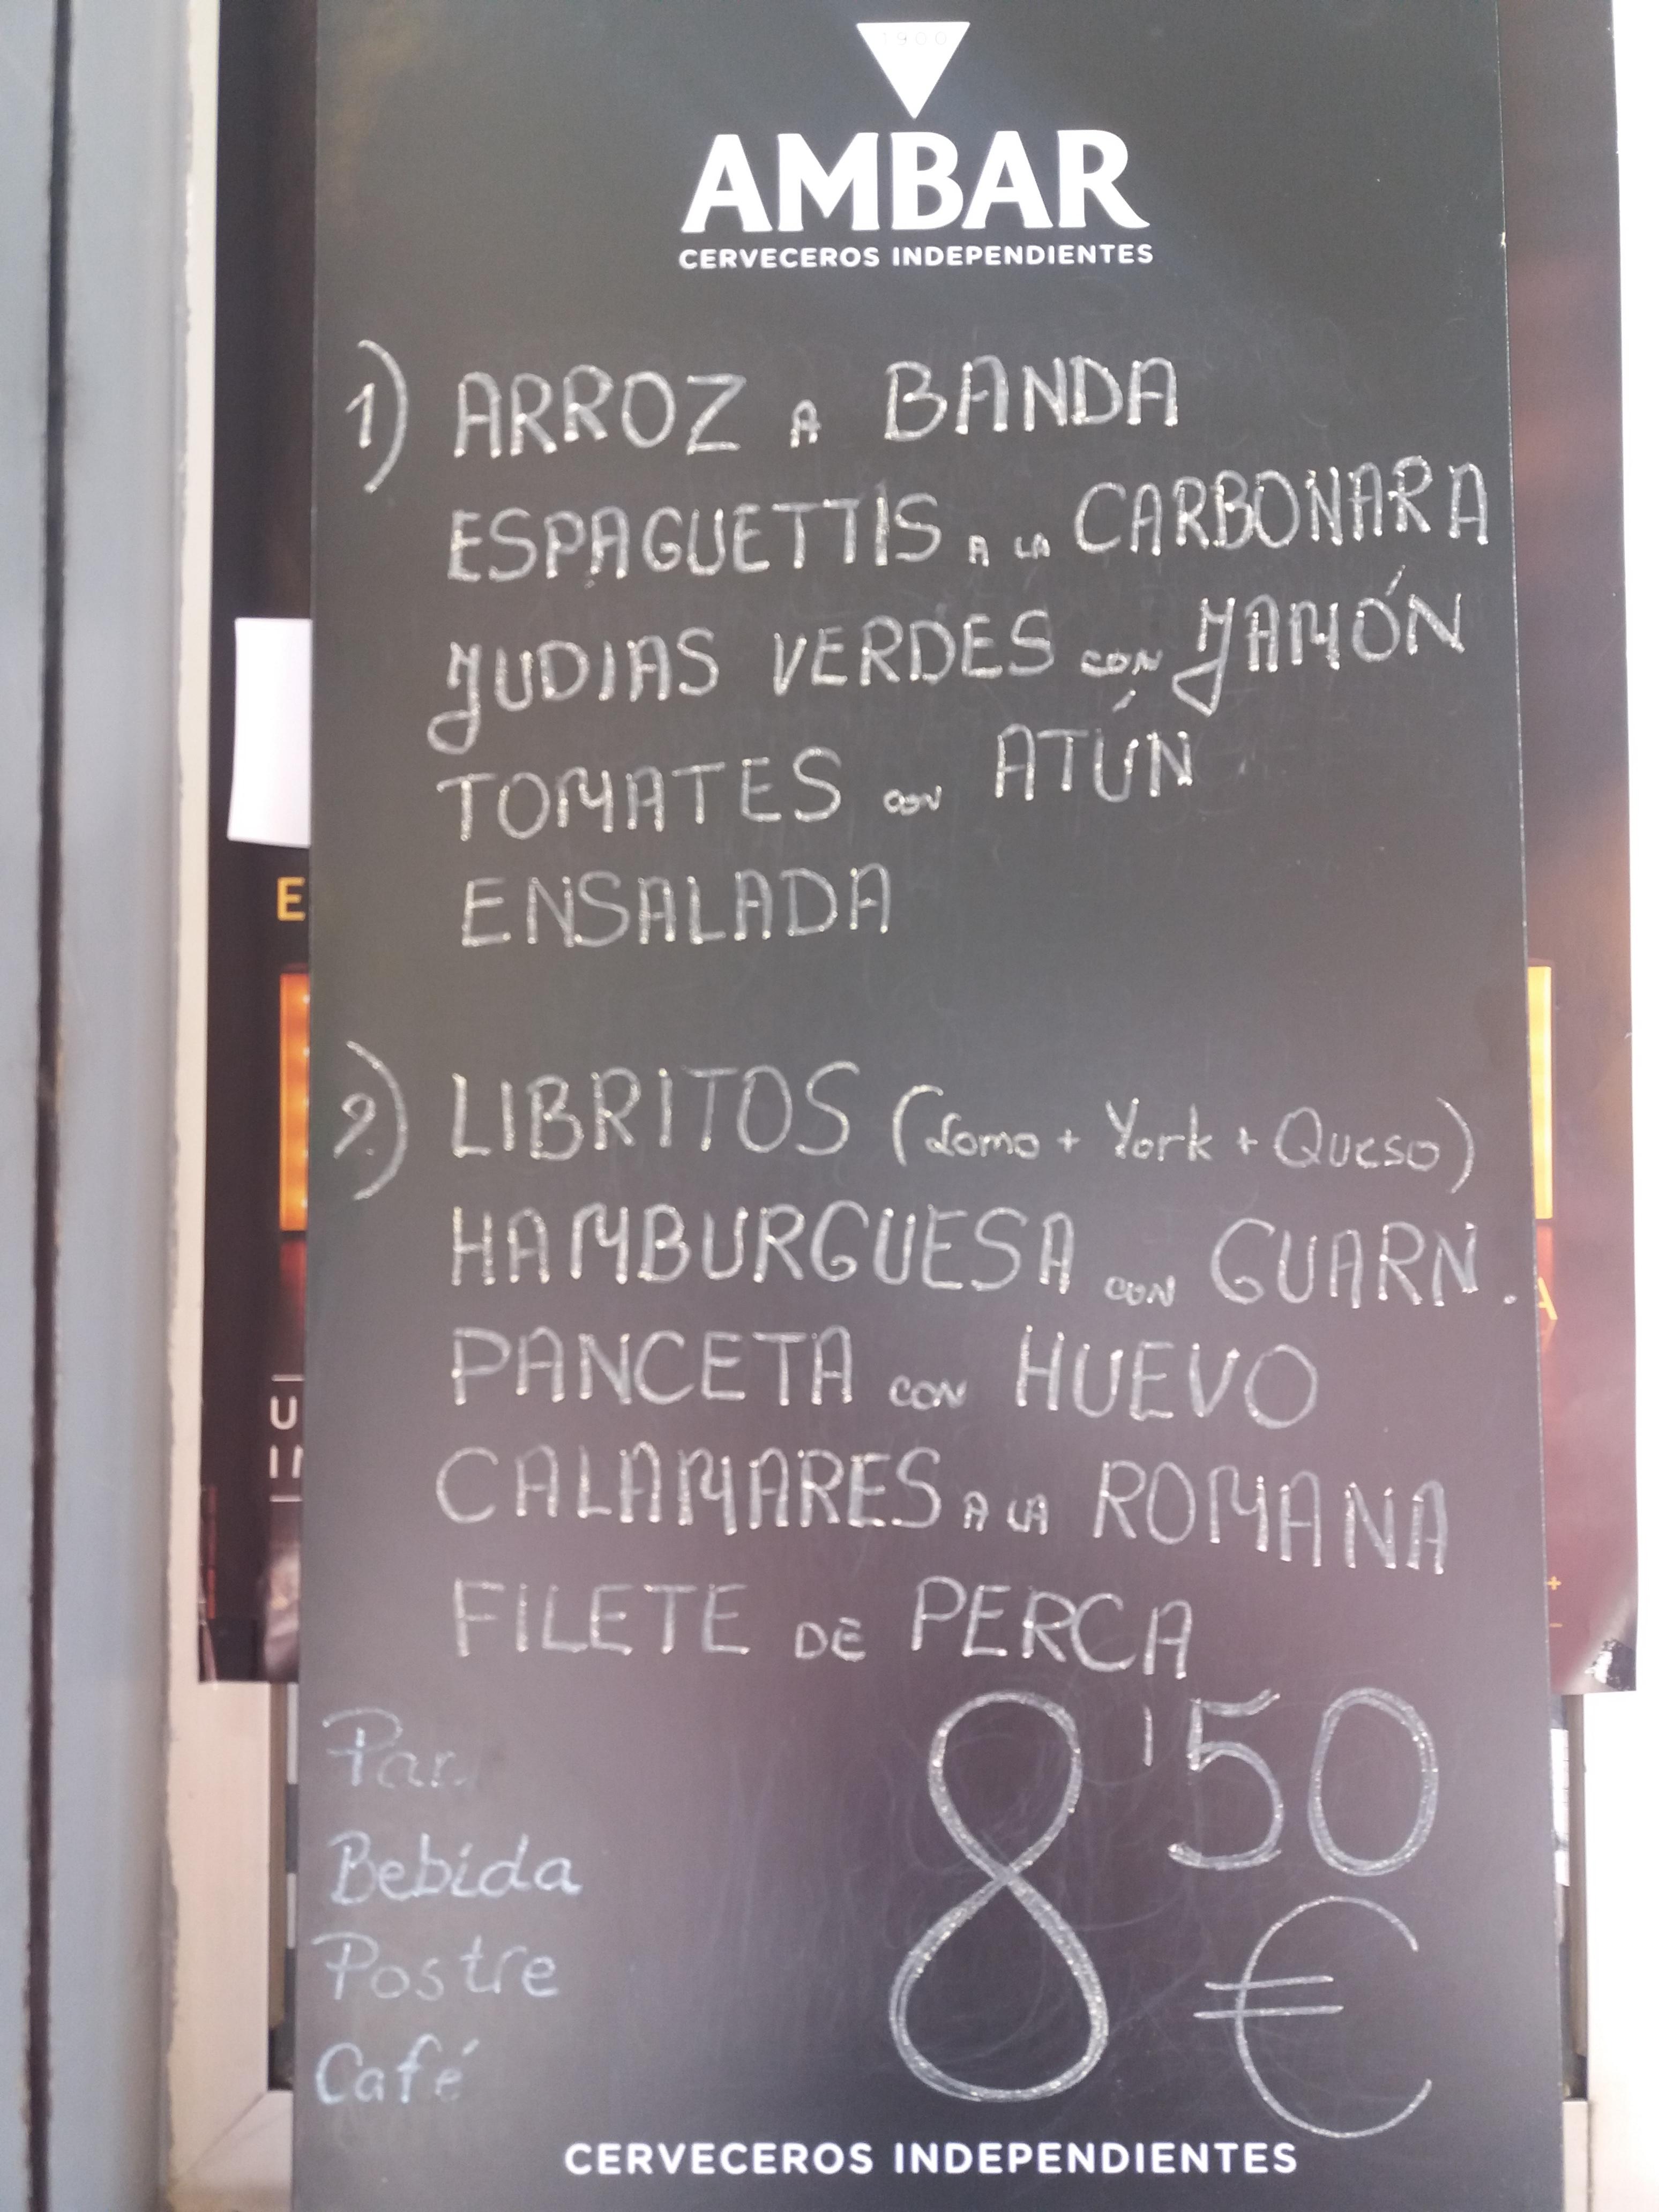 1900
AMBAR
CERVECEROS INDEPENDIENTES
1) ARROZ A BANDA
ESPAGUETTIS A LA CARBONARA
JUDIAS VERDES CON JAMÓN
TOMATES CON ATÚN
ENSALADA
2) LIBRITOS (Lomo + York + Queso)
HAMBURGUESA CON GUARN.
PANCETA CON HUEVO
CALAMARES A LA ROMANA
FILETE DE PERCA
8'50
€
Bebida
Postre
Café
CERVECEROS INDEPENDIENTES